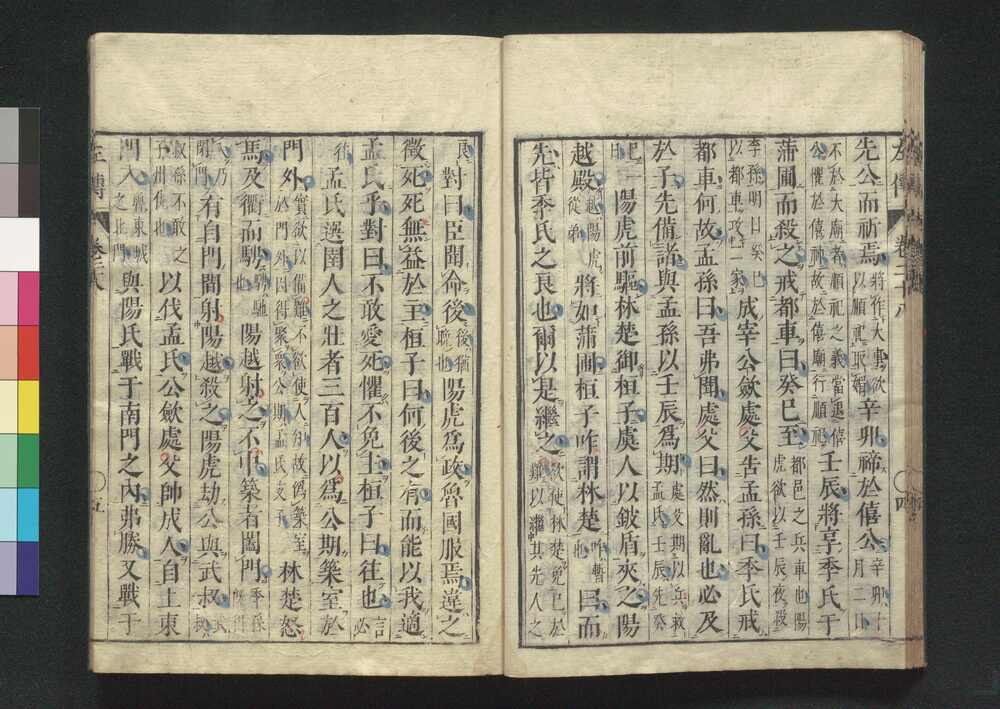 左傳 卷二十八 四
先公而祈焉將作大事欲以順祀取媚辛卯禘於僖公辛卯十月二日
不於大廟者順祀之義當退僖公懼於僖神故於僖廟行順祀壬辰將享季氏于
蒲圃而殺之戒都車曰癸巳至都邑之兵車也陽虎欲以壬辰夜殺
季孫明日癸巳以都車攻二家成宰公歛處父告孟孫曰季氏戒
都車何故孟孫曰吾弗聞處父曰然則亂也必及
於子先備諸與孟孫以壬辰爲期處父期以兵救孟氏壬辰先癸
巳一日陽虎前驅林楚御桓子虞人以鈹盾夾之陽
越殿越陽虎從弟將如蒲圃桓子咋謂林楚咋暫也曰而
先皆季氏之良也爾以是繼之欲使林楚免已於難以繼其先人之
良對曰臣聞命後後猶晚也陽虎爲政魯國服焉違之
徵死死無益於主桓子曰何後之有而能以我適
孟氏乎對曰不敢愛死懼不免主桓子曰往也言必
往孟氏選圉人之壯者三百人以爲公期築室於
門外實欲以備難不欲使人知故僞築室於門外因得聚衆公期孟氏支子林楚怒
馬及衢而騁騁馳也陽越射之不中築者闔門季孫既得
入乃閉門有自門間射陽越殺之陽虎劫公與武叔武叔
叔孫不敢之子州仇也以伐孟氏公歛處父帥成人自上東
門入魯東城之北門與陽氏戰于南門之內弗勝又戰于
左傳 卷二十八 五